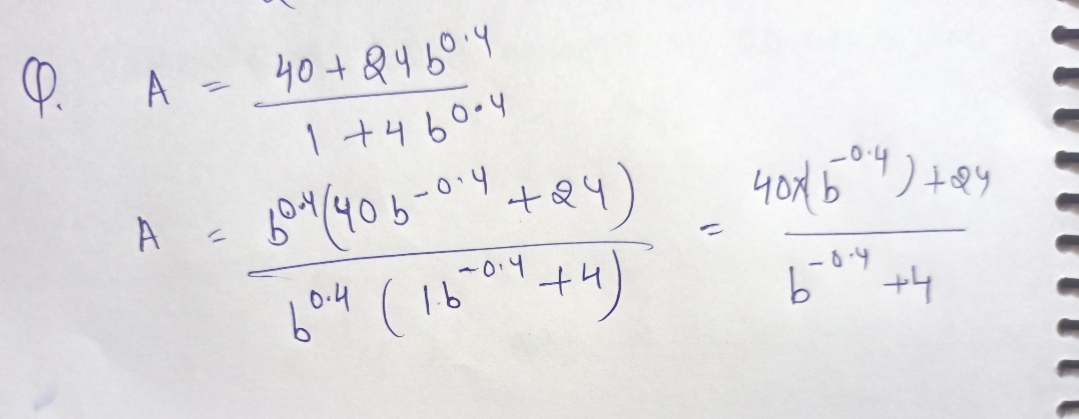 Q. A = (40 + 24 b^0.4) / (1 + 4 b^0.4)
A = b^0.4 (40 b^-0.4 + 24) / b^0.4 (1.b^-0.4 + 4) = 40x(b^-0.4) + 24 / b^-0.4 + 4